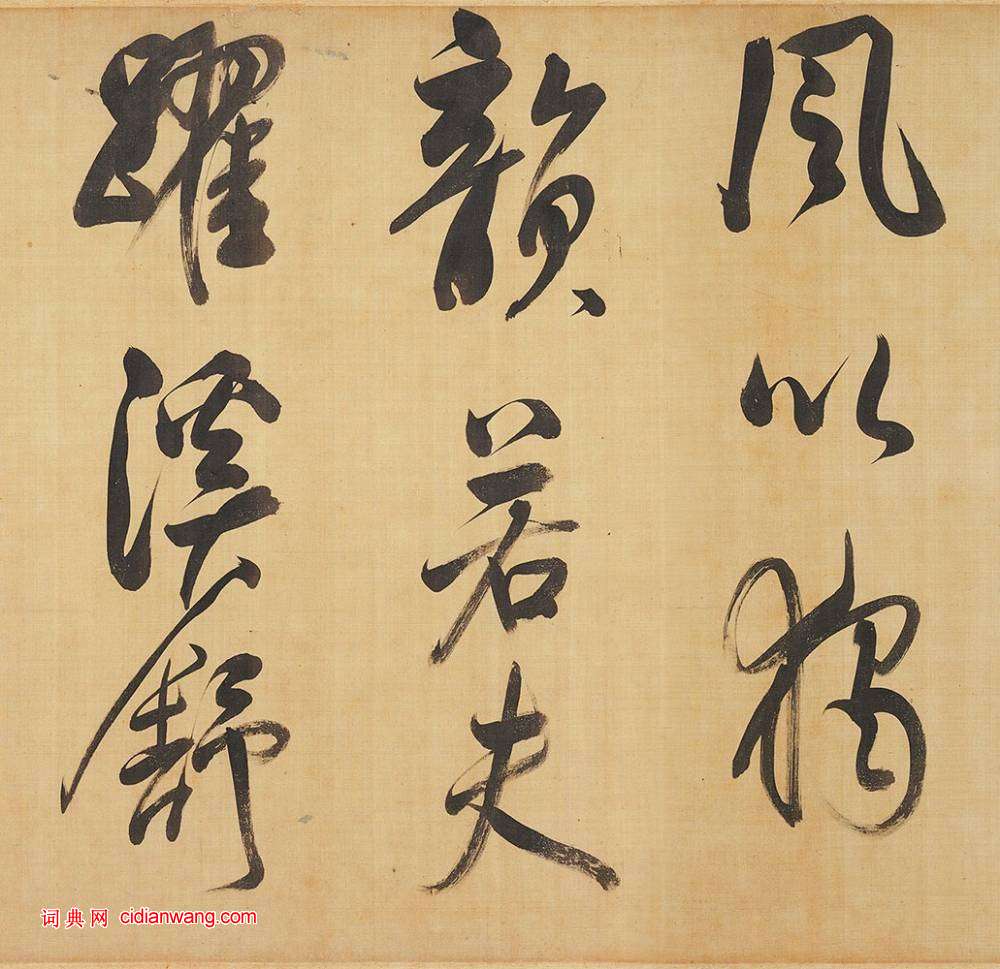 風以獨
韻若夫
躍溪舒
词典网 cidianwang.com